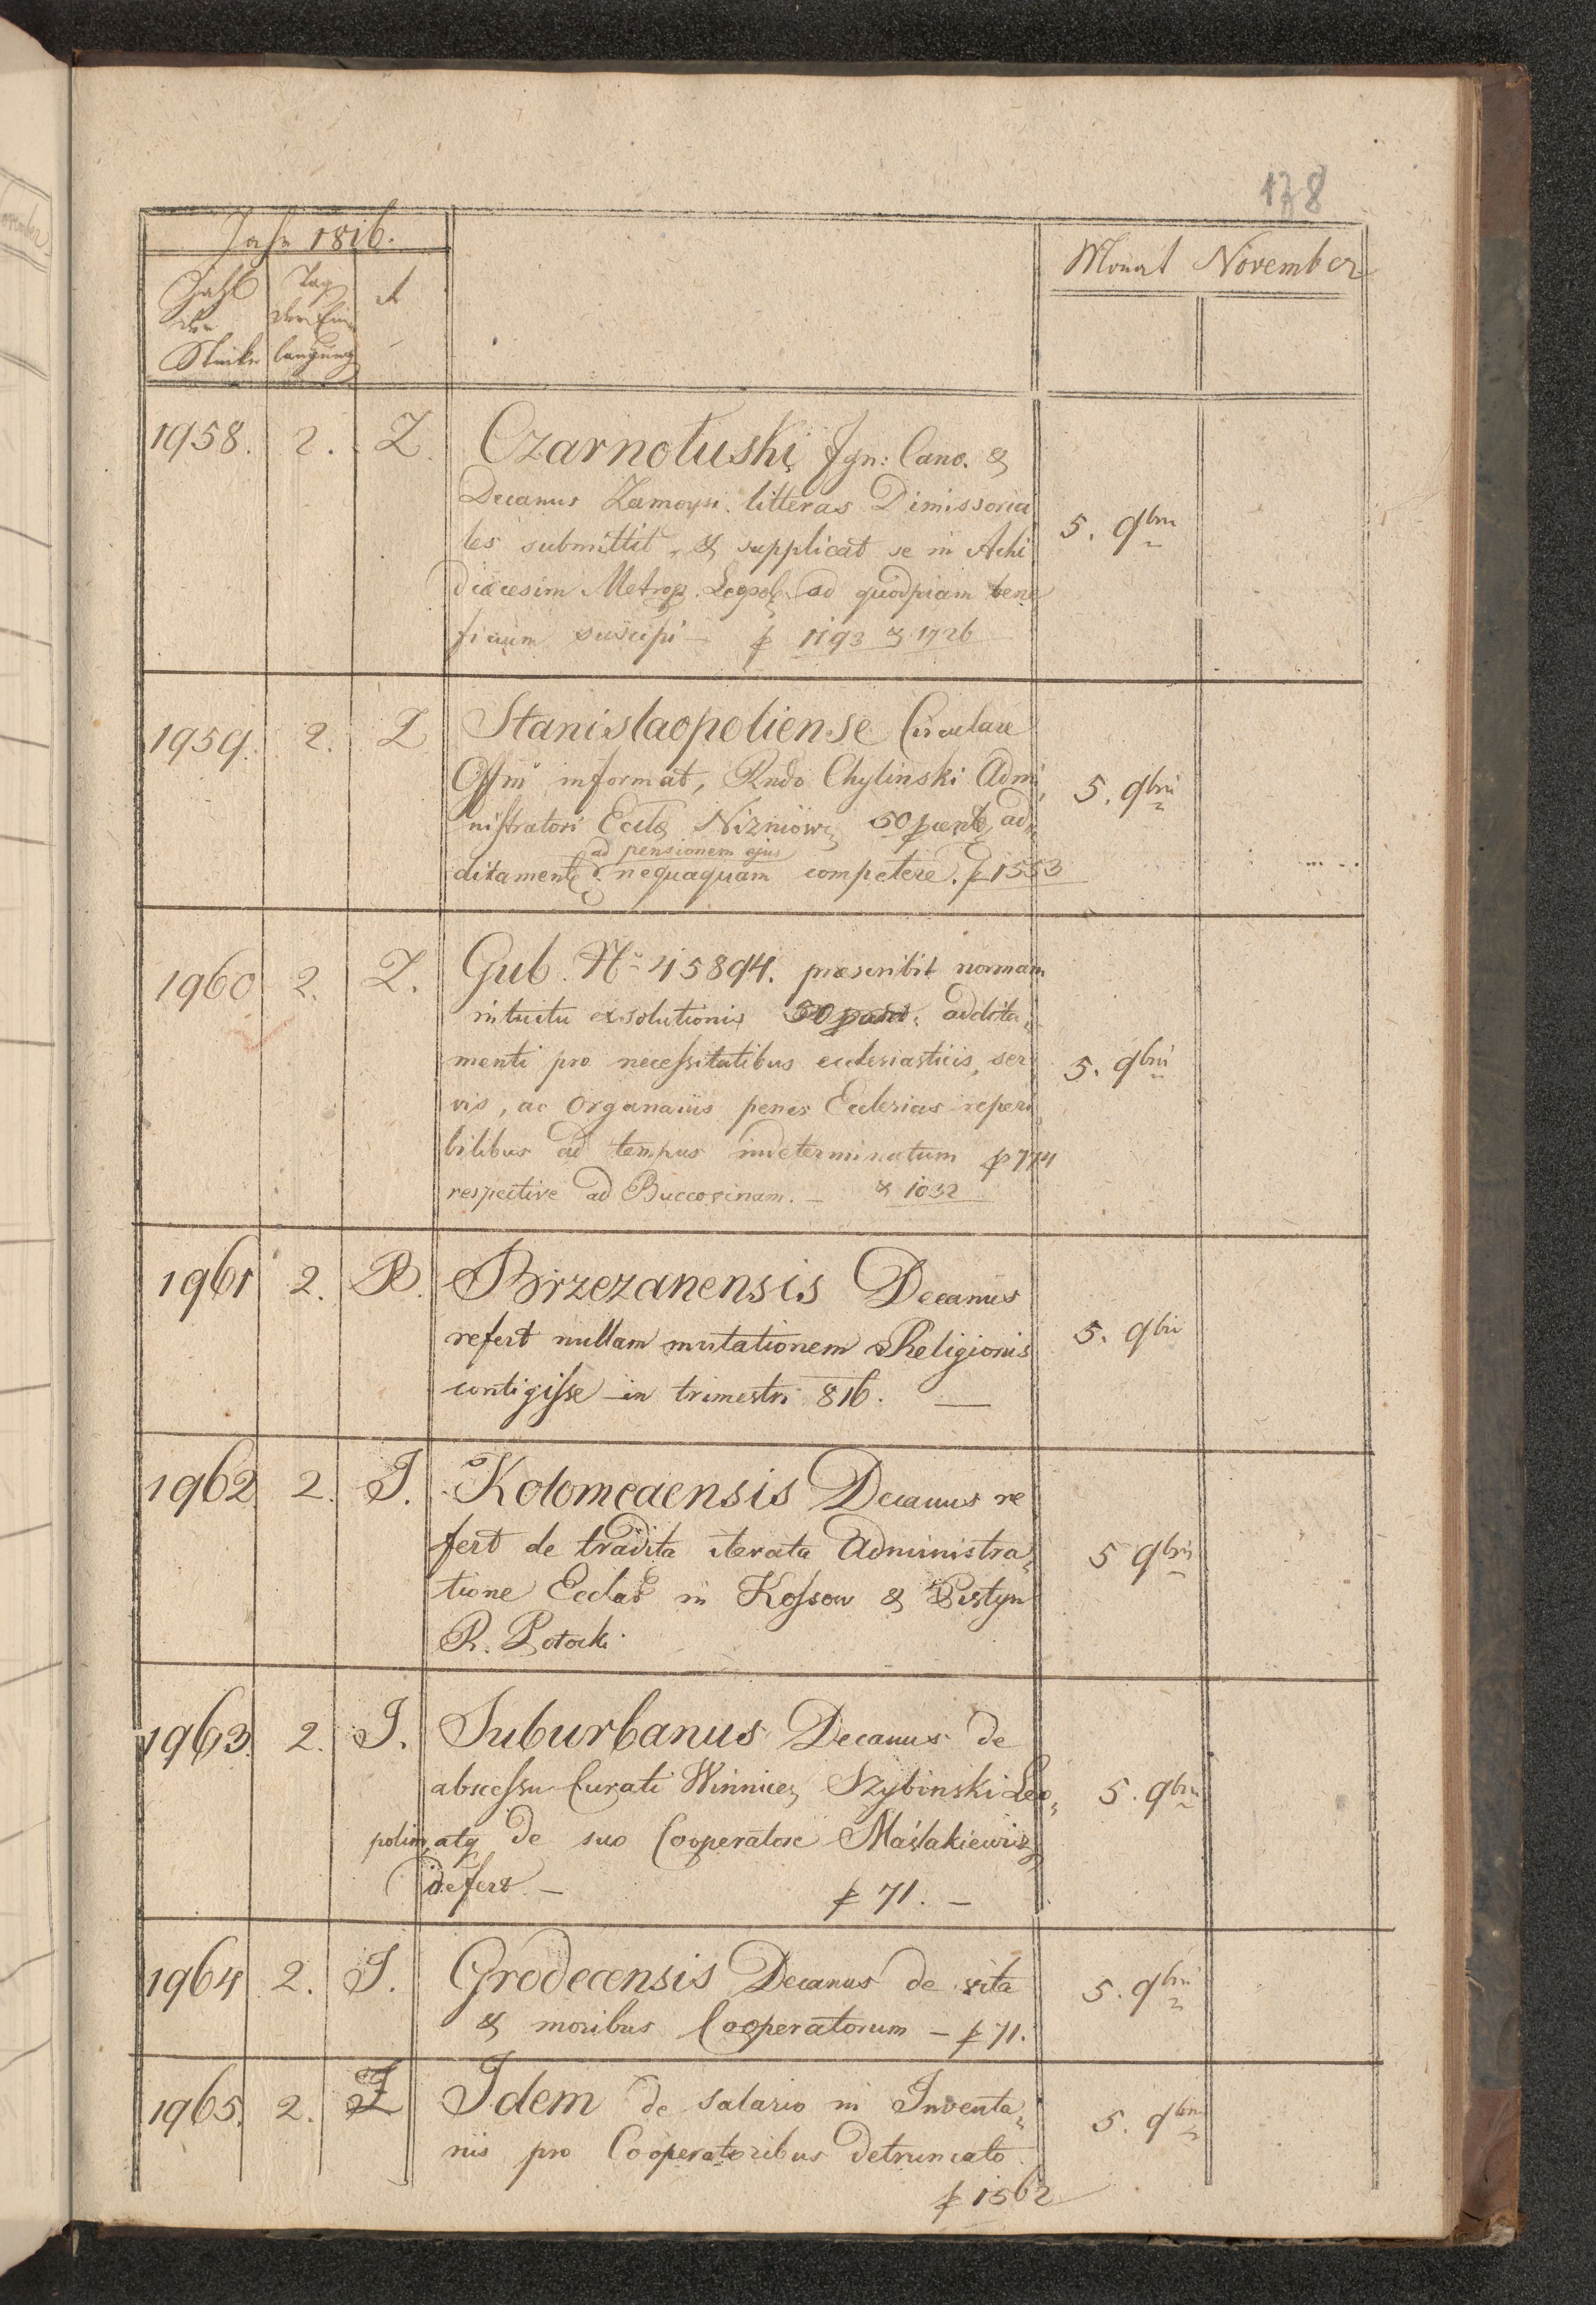 178
Jahr 1816.
Monat November
Zahl der Stücke
Tag der Einlangung
1958. 2. Z. Czarnotuski Ign: Cano. &
Decanus Zamoysi. litteras Dimissoria
les submittit, & supplicat se in Achi
diœcesim Metrop. Leopol. ad quodpiam bene
ficium suscipi — p 1193 & 1726
5. 9bris
1959. 2. Z Stanislaopoliense Circulare
Offm informat, Rndo Chylinski Admi,
nistratori Ecclæ Nizniow, 50 pcent, ad,
ad pensionem ejus
ditamenti nequaquam competere. p 1553
5. 9bris
1960 2. Z. Gub. No 45894. præscribit normam
intuitu exsolutionis 50 pcent: addita,
menti pro necessitatibus ecclesiasticis, ser
vis, ac Organariis penes Ecclesias reperi
bilibus ad tempus indeterminatum p 774
respective ad Buccovinam. — & 1032
5. 9bris
1961 2. R. Brzezanensis Decanus
refert nullam mutationem Religionis
contigisse in trimestri 816. —
5. 9bris
1962. 2. J. Kolomeaensis Decanus re
fert de tradita iterata Administra,
tione Ecclæ in Kossow & Pistyn
R. Potocki
5 9bris
1963. 2. J. Suburbanus Decanus de
abscessu Curati Winnicz, Szybinski Leo,
polim, atq de suo Cooperatore Maślakiewicz
defert. — p 71. —
5. 9bris
1964 2. J. Grodecensis Decanus de vita
& moribus Cooperatorum — p 71.
5. 9bris
1965. 2. Z Idem de salario in Inventa,
riis pro Cooperatoribus detruncato
p 1562
5. 9bris